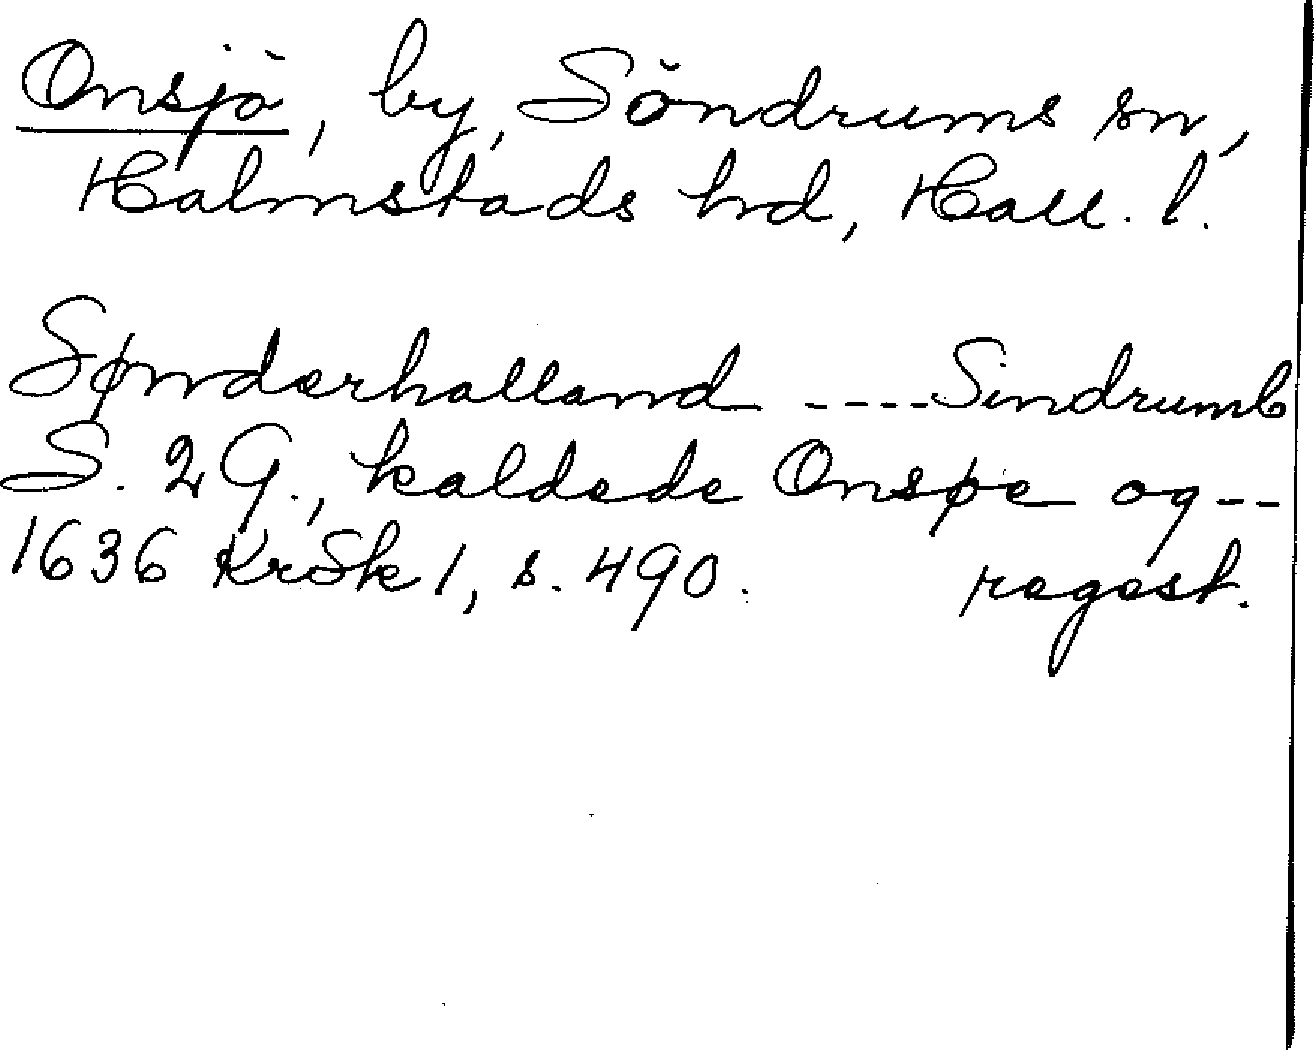 Onsjö, by, Söndrums sn,
Halmstads hd, Hall. l.
Sønderhalland ---- Sindrumb
S. 2 G., kaldede Onsøe og --
1636 KrSk 1, s. 490. regest.